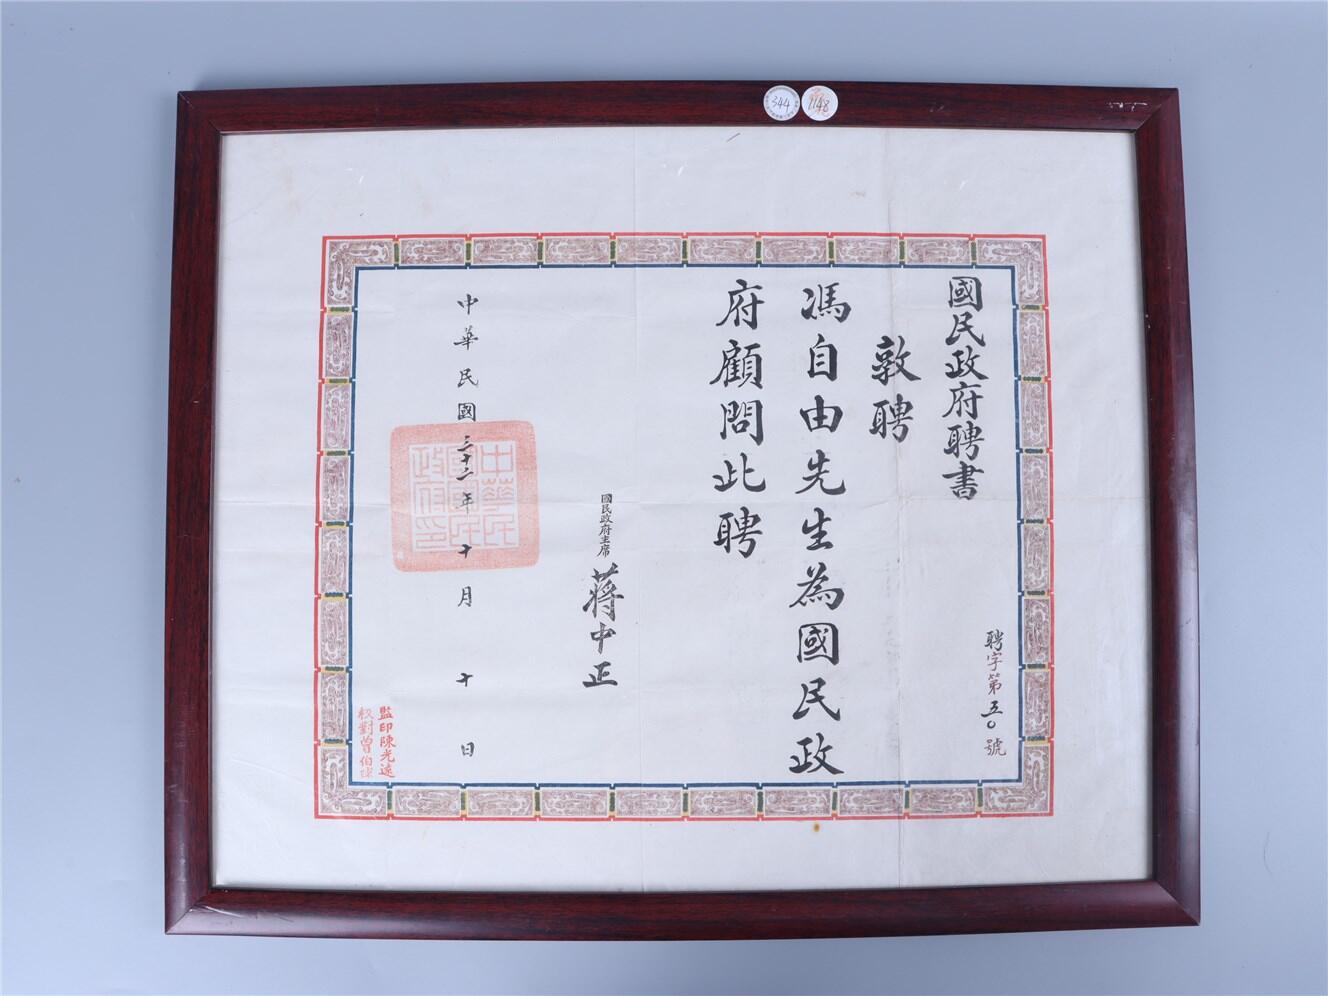 344
1148
國民政府聘書
聘字第五〇號
敦聘
馮自由先生為國民政
府顧問此聘
國民政府主席 蔣中正
中華民國三十二年十月十日
中華民
國國民
政府印
監印陳光遠
校對曾伯